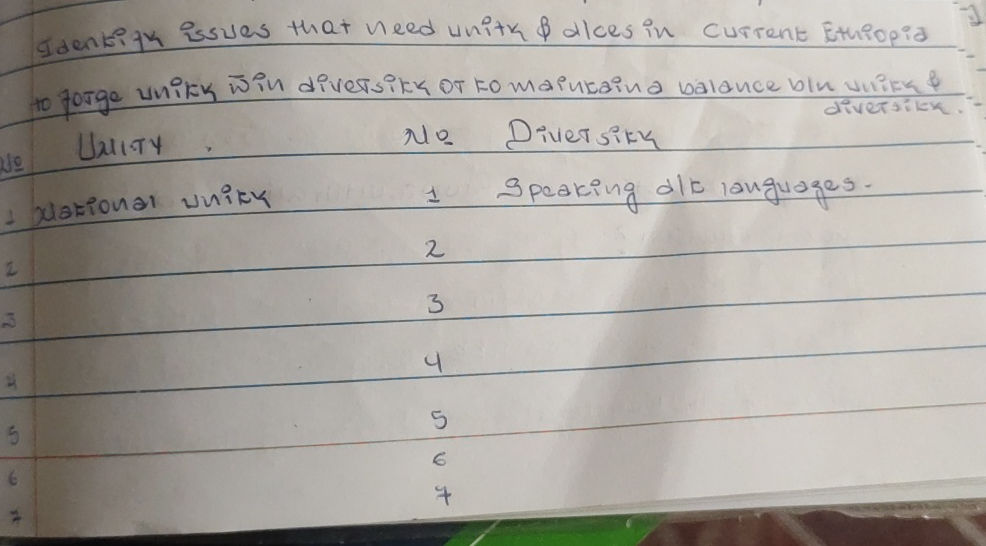 Identify issues that need unity & d/ces in current Ethiopia
to forge unity w/in diversity or to maintain a balance b/n unity &
diversity.
No UNITY No Diversity
1 National unity 1 Speaking d/t languages.
2 2
3 3
4 4
5 5
6 6
7 7